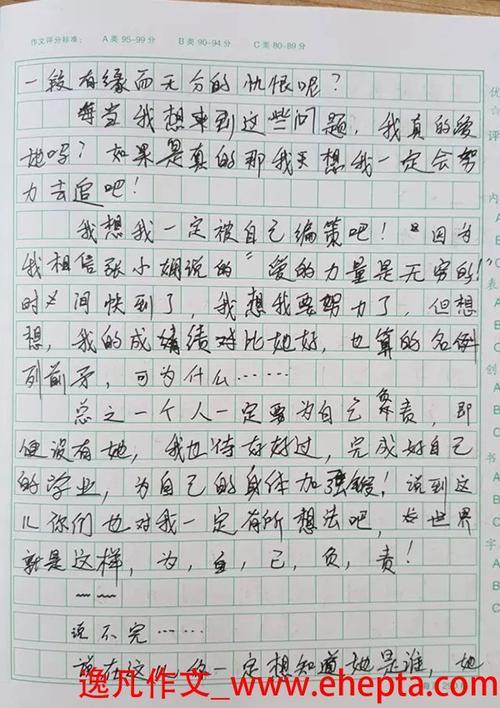 作文评分标准： A类 95-99分 B类 90-94分 C类 80-89分
一段有缘而无分的仇恨呢？
每当我想来到这些问题，我真的爱
她吗？如果是真的那我天想我一定会努
力去追吧！
我想我一定被自己编策吧！“因为
我相信张小娴说的“爱的力量是无穷的！
时间快到了，我想我要努力了，但想
想，我的成绩对比她好，也算的名例
列前矛，可为什么……
总之一个人一定要为自己负责，即
便没有她，我也待好好过，完成好自己
的学业，为自己的身体加强锻！说到这
儿你们也对我一定有所想法吧，世界
就是这样，为，自，己，负，责！
——
说不完……
说在这儿，你一定想知道她是谁，她
优
评
内
A
B
C
表
A
B
C
创
书
字
A
B
C
逸凡作文_www.ehepta.com